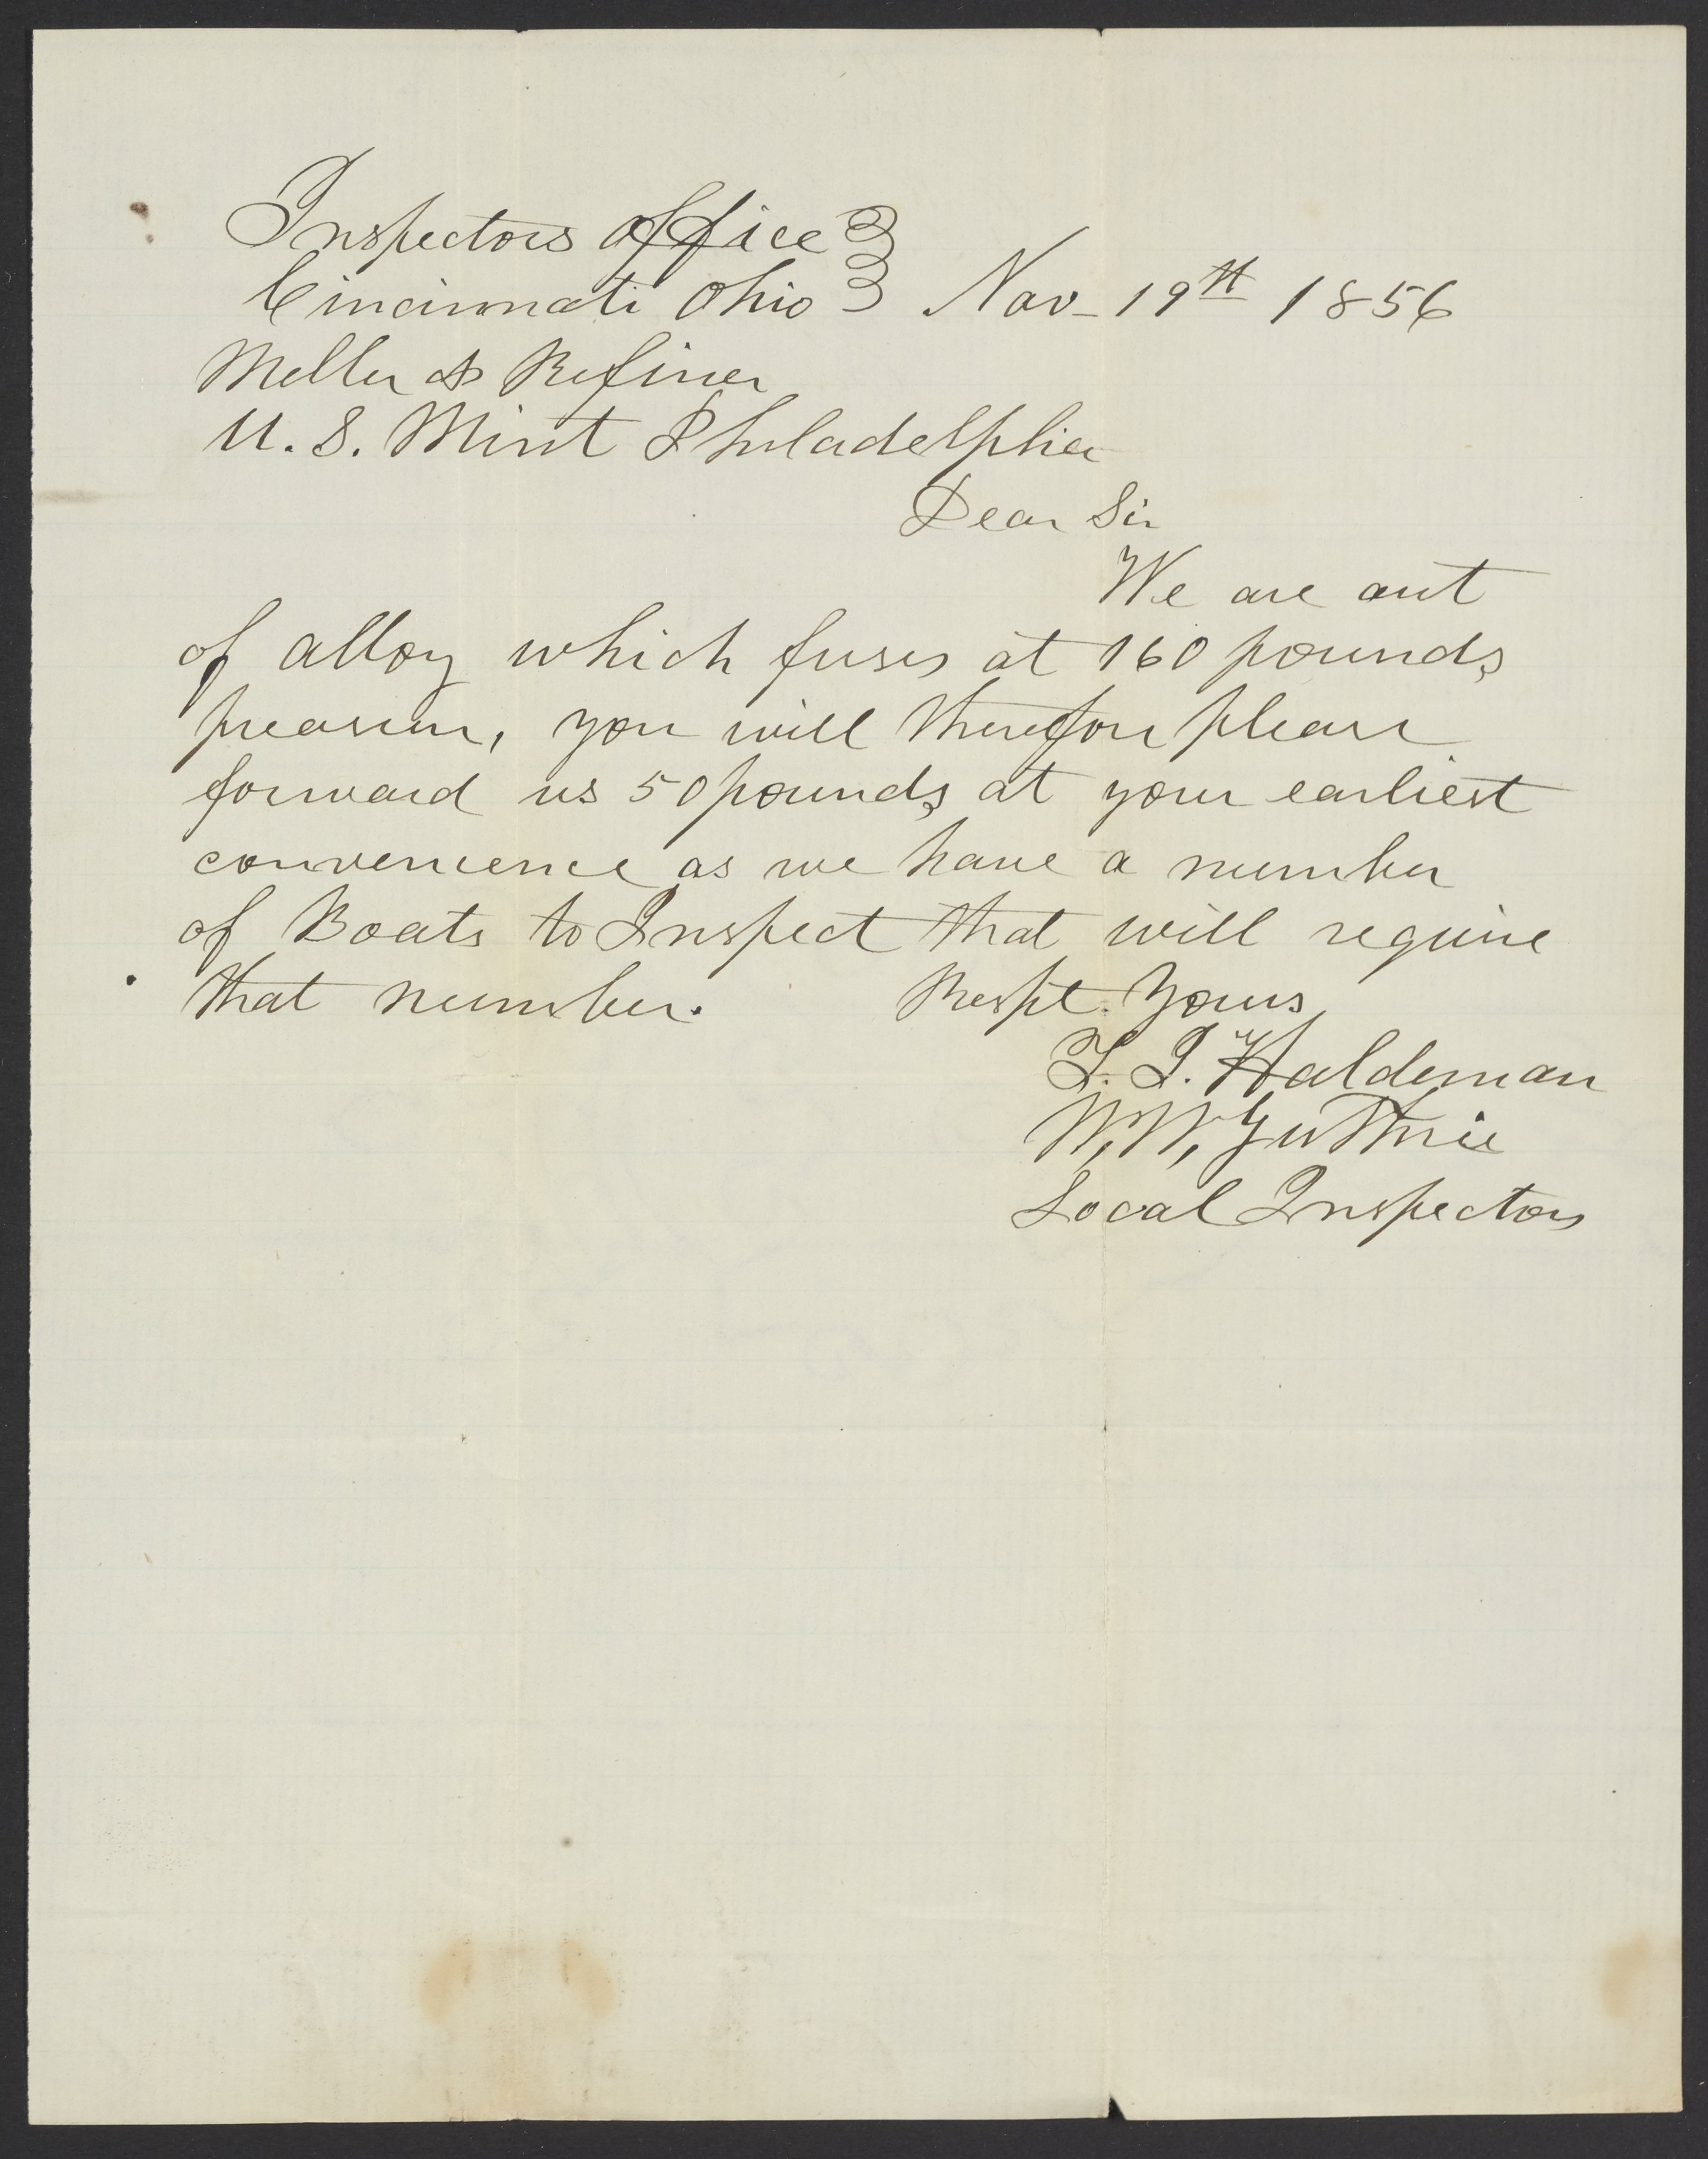 Inspectors Office }
Cincinnati Ohio } Nov - 19th 1856
Melter & Refiner
U. S. Mint Philadelphia
Dear Sir
We are out
of alloy which fuses at 160 pounds
preasure, you will therefore please
forward us 50 pounds at your earliest
convenience as we have a number
of Boats to Inspect that will require
that number. Respt. Yours
T. J. Haldeman
W, W, Guthrie
Local Inspectors